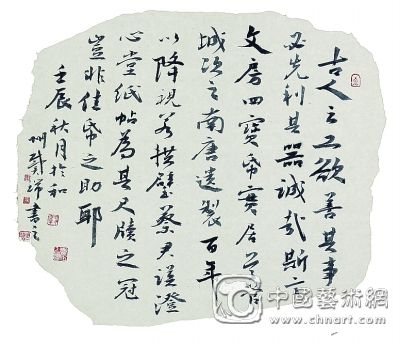 古人之工欲善其事
必先利其器誠哉斯言
文房四寶帋實居首
城次之南唐遺製百年
以降現若拱璧蔡君謨澄
心堂紙帖為其尺牘之冠
豈非佳帋之助耶
壬辰秋月於和
州
書之
中國藝術網
www.chnart.com